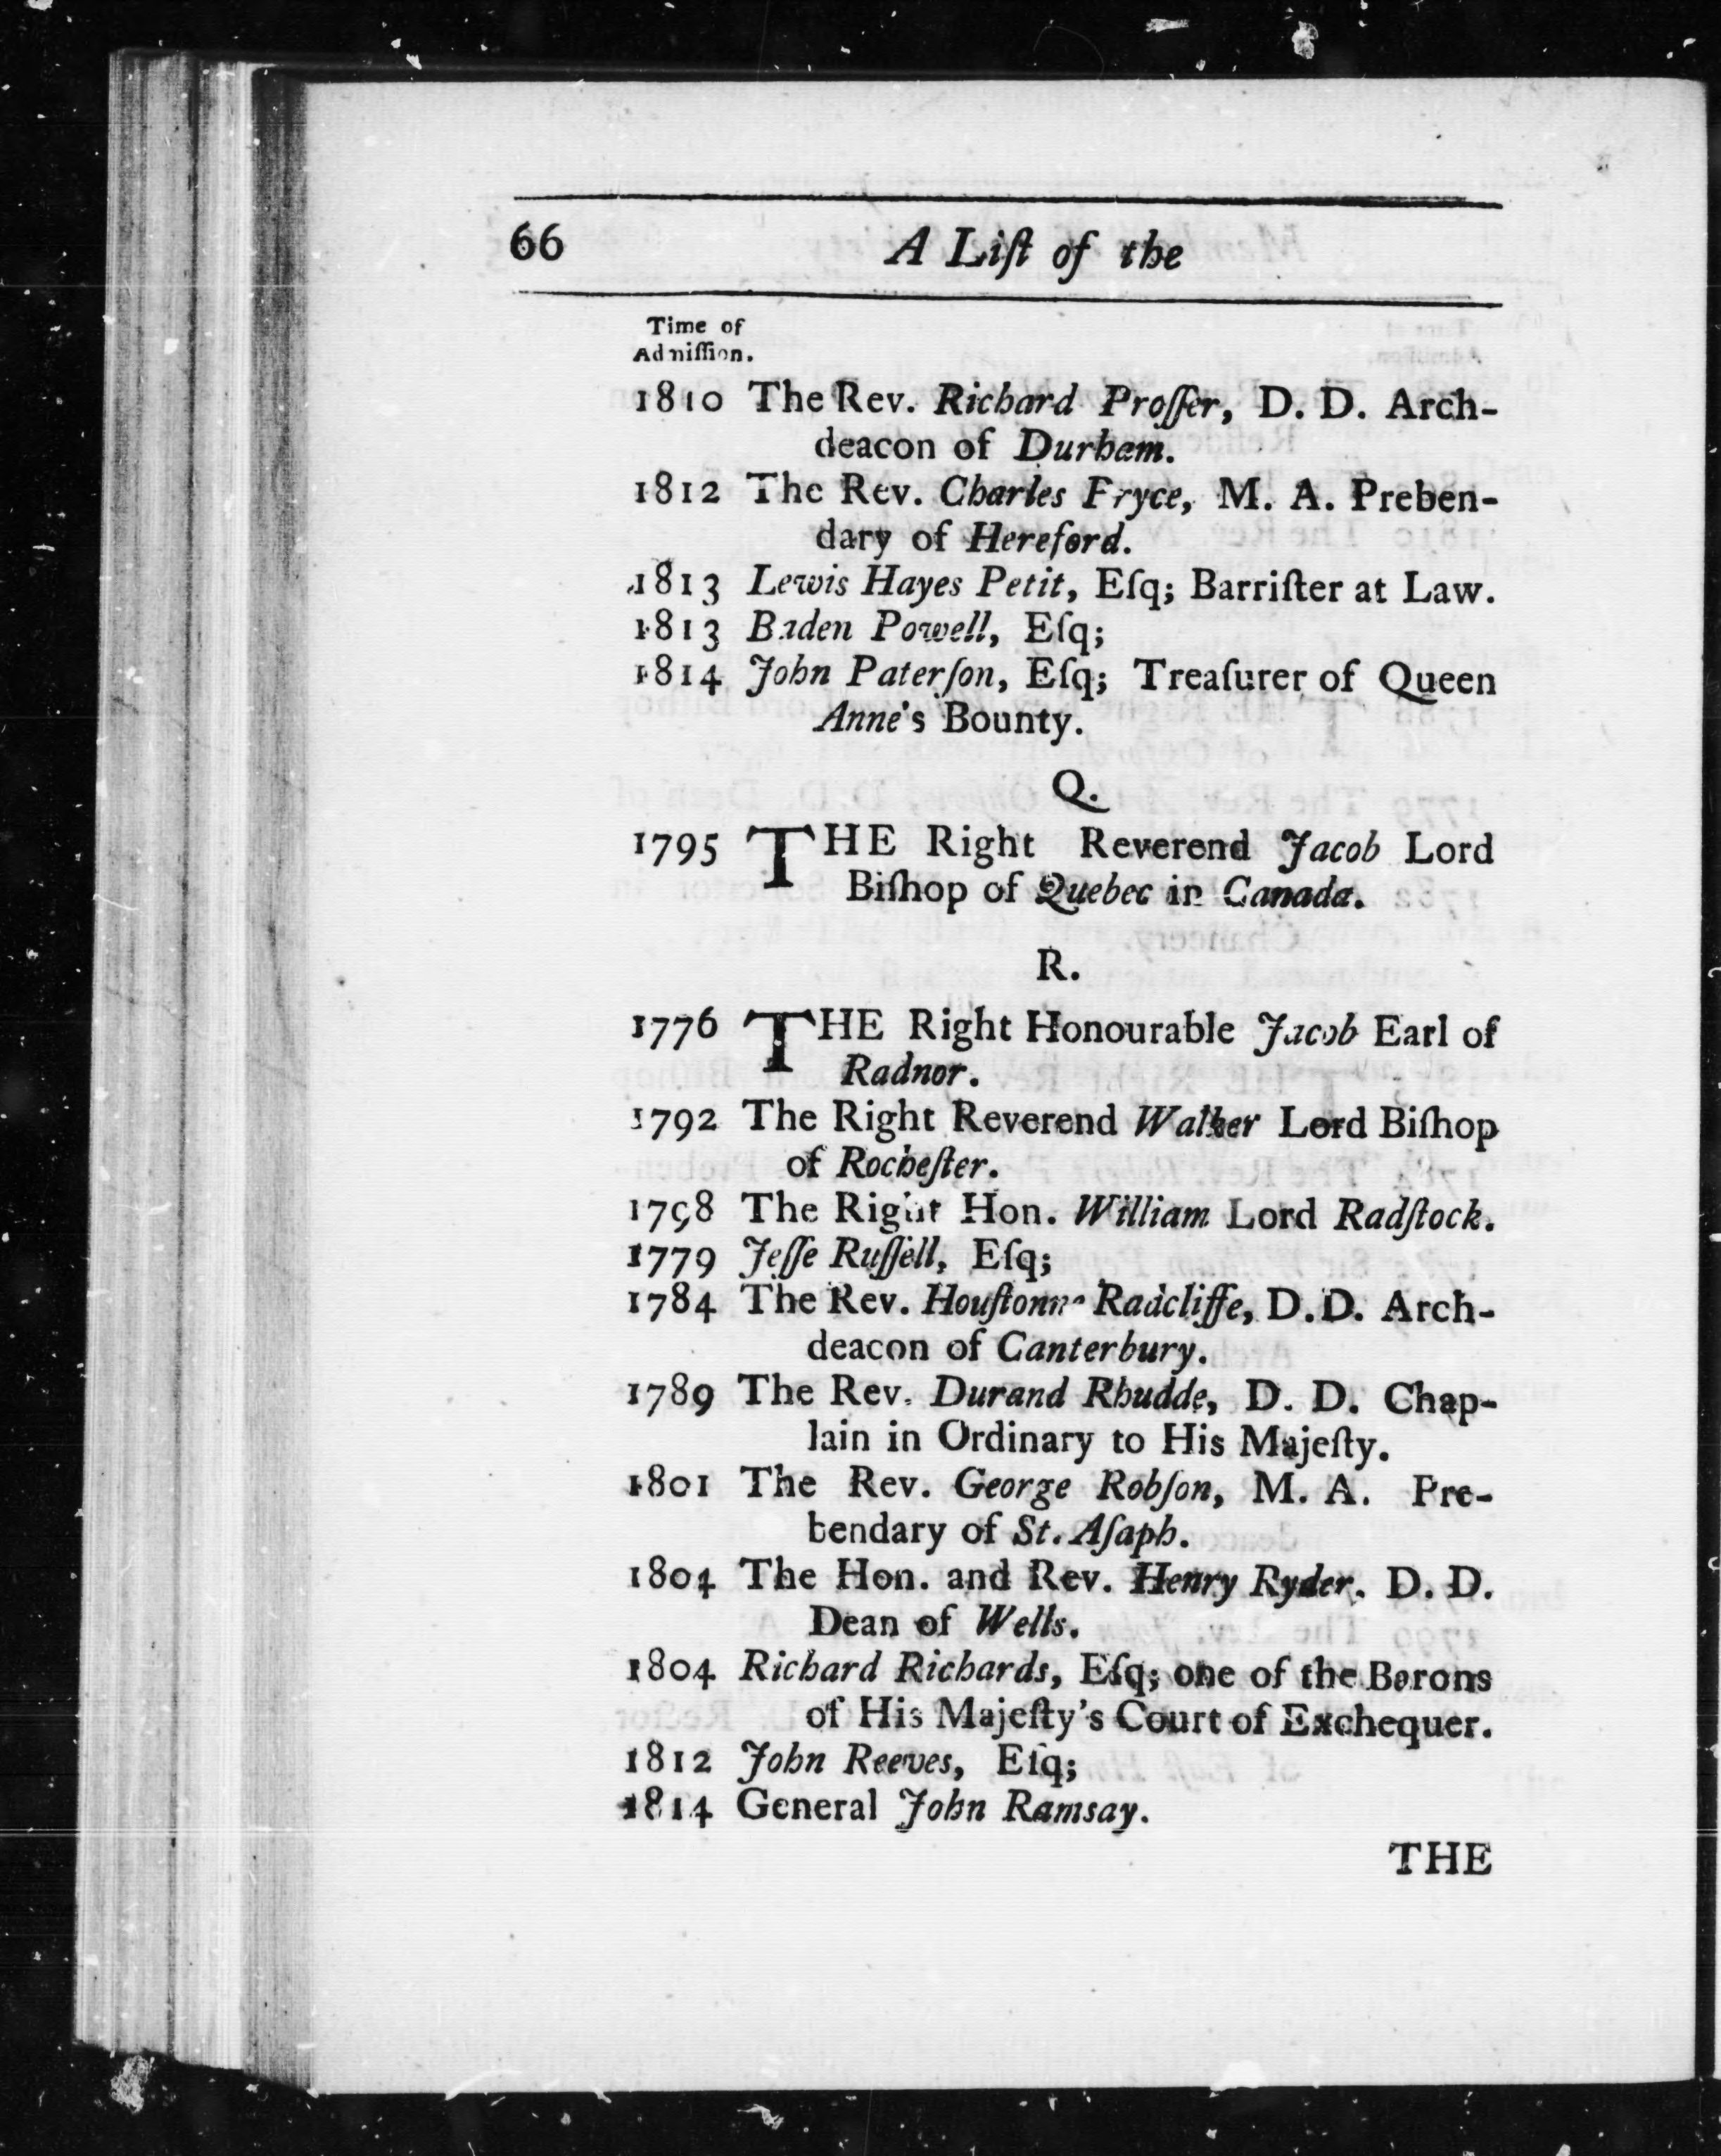 66 A Liſt of the
Time of
Admiſſion.
1810 The Rev. Richard Proſſer, D. D. Arch-
deacon of Durham.
1812 The Rev. Charles Pryce, M. A. Preben-
dary of Hereford.
1813 Lewis Hayes Petit, Eſq; Barriſter at Law.
1813 Baden Powell, Eſq;
1814 John Paterſon, Eſq; Treaſurer of Queen
Anne's Bounty.
Q.
1795 THE Right Reverend Jacob Lord
Biſhop of Quebec in Canada.
R.
1776 THE Right Honourable Jacob Earl of
Radnor.
1792 The Right Reverend Walker Lord Biſhop
of Rocheſter.
1798 The Right Hon. William Lord Radſtock.
1779 Jeſſe Ruſſell, Eſq;
1784 The Rev. Houſtonne Radcliffe, D.D. Arch-
deacon of Canterbury.
1789 The Rev. Durand Rhudde, D. D. Chap-
lain in Ordinary to His Majeſty.
1801 The Rev. George Robſon, M. A. Pre-
bendary of St. Aſaph.
1804 The Hon. and Rev. Henry Ryder, D. D.
Dean of Wells.
1804 Richard Richards, Eſq; one of the Barons
of His Majeſty's Court of Exchequer.
1812 John Reeves, Eſq;
1814 General John Ramsay.
THE